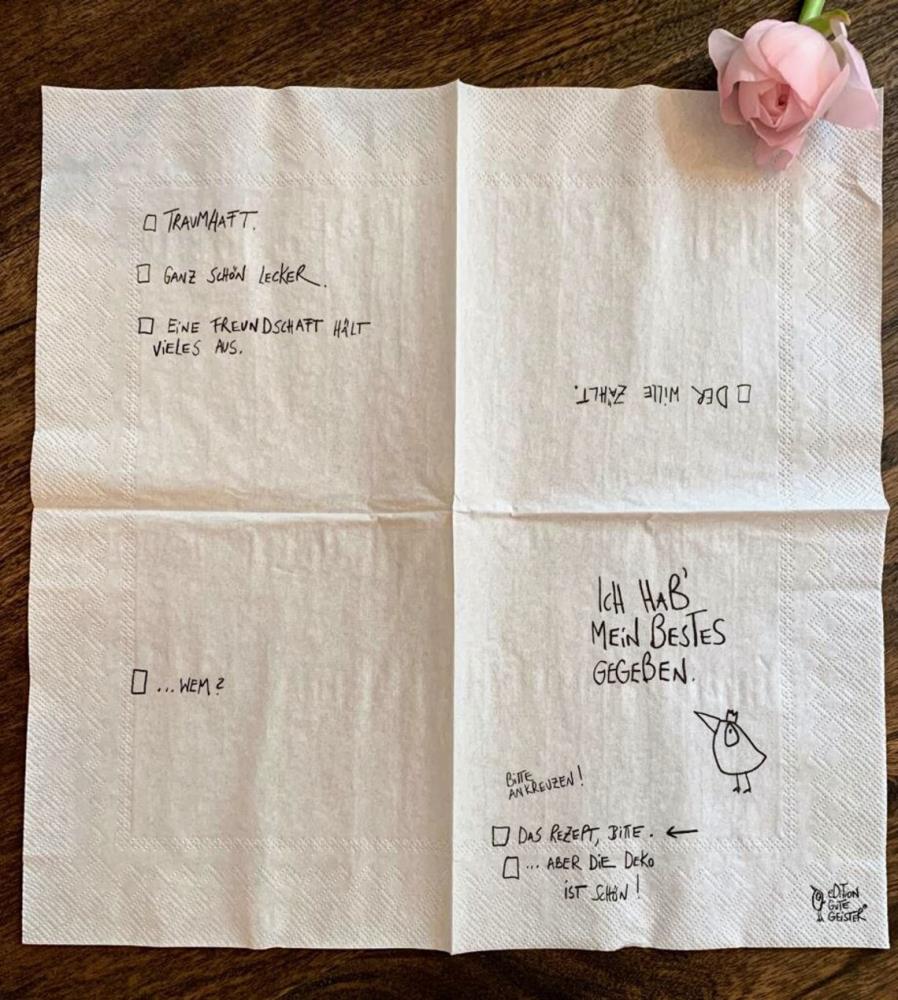 □ TRAUMHAFT.
□ GANZ SCHÖN LECKER.
□ EINE FREUNDSCHAFT HÄLT
VIELES AUS.
□ DER WILLE ZÄHLT.
□ ...WEM?
ICH HAB'
MEIN BESTES
GEGEBEN.
BITTE
ANKREUZEN!
□ DAS REZEPT, BITTE. ←
□ ... ABER DIE DEKO
IST SCHÖN!
EDITION
GUTE
GEISTER®